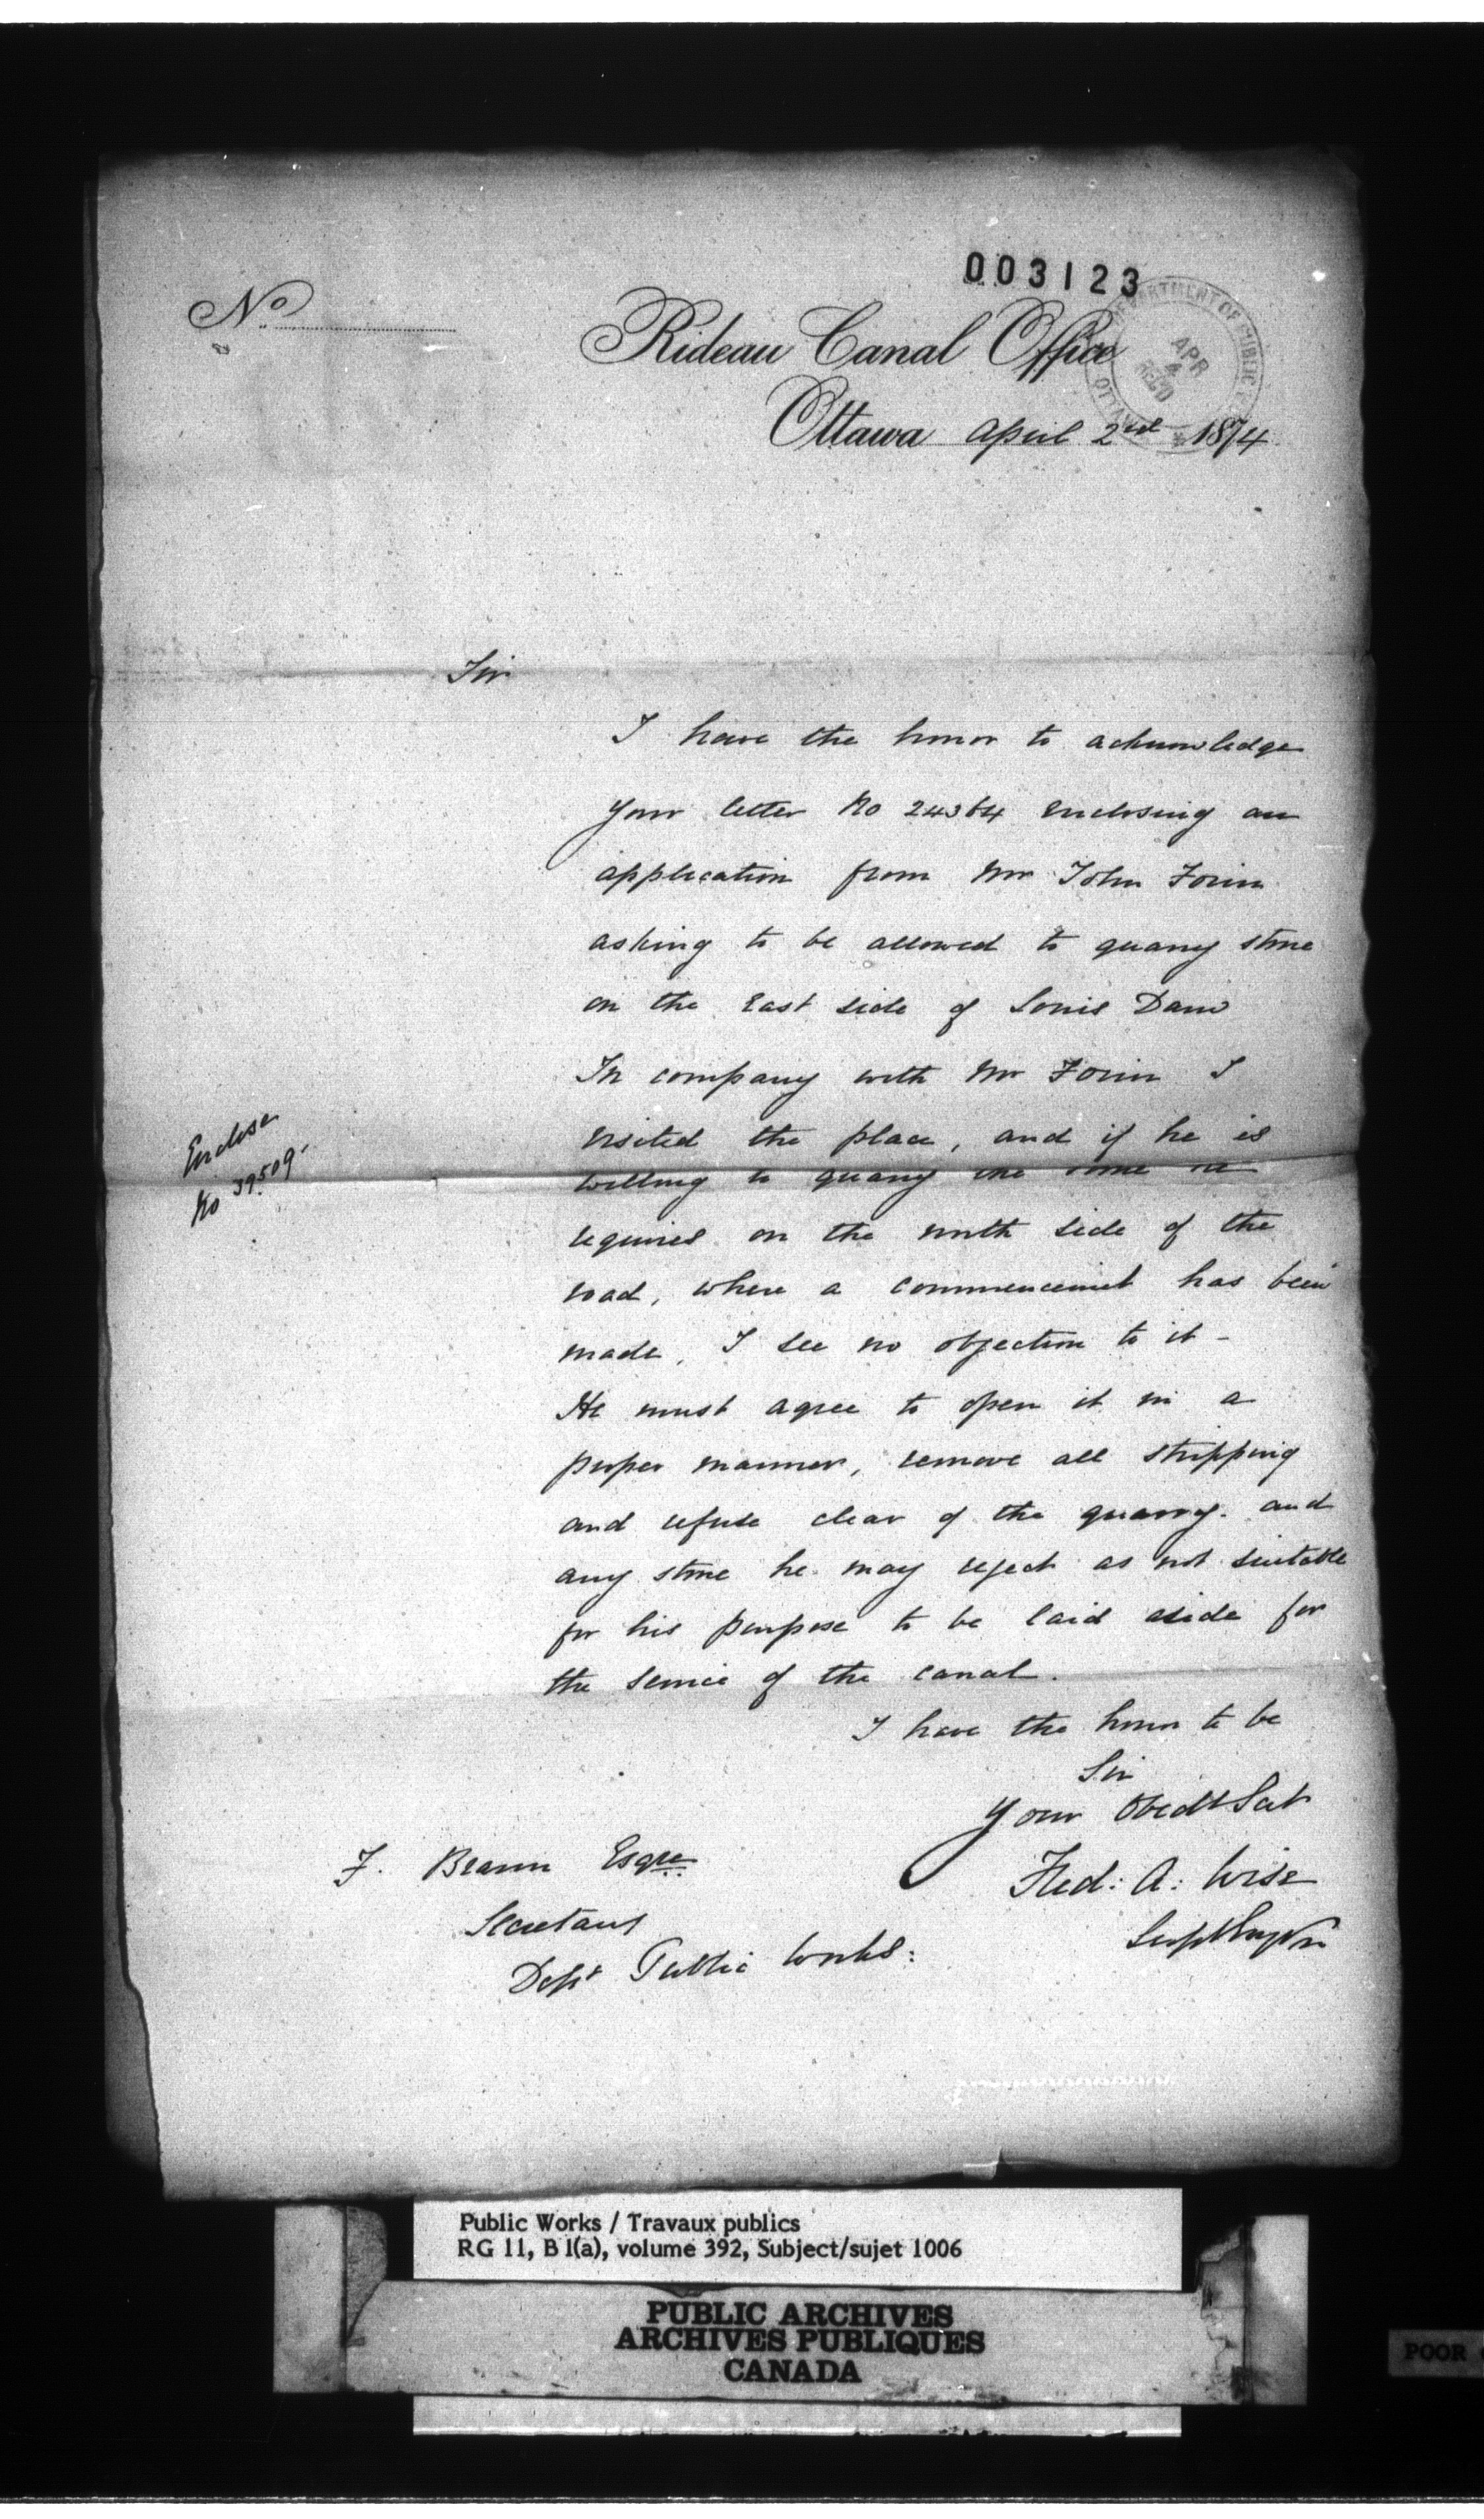 003123
No
Rideau Canal Office
DEPARTMENT OF PUBLIC
OTTAWA
APR
4
REC'D
Ottawa April 2nd 1874
Sir
I have the honor to acknowledge
your letter No 24364 enclosing an
application from Mr John Forin
asking to be allowed to quarry stone
on the East side of Louis Dam
In company with Mr Forin I
visited the place, and if he is
willing to quarry the stone he
requires on the north side of the
road, where a commencement has been
made, I see no objection to it -
He must agree to open it in a
proper manner, remove all stripping
and refuse clear of the quarry. and
any stone he may reject as not suitable
for his purpose to be laid aside for
the service of the canal.
Enclose
No 39509.
I have the honor to be
Sir
Your Obedt Svt
Fred: A: Wise
Supt Engr
F. Braun Esqre
Secretary
Dept Public Works:
Public Works / Travaux publics
RG 11, B 1(a), volume 392, Subject/sujet 1006
PUBLIC ARCHIVES
ARCHIVES PUBLIQUES
CANADA
POOR